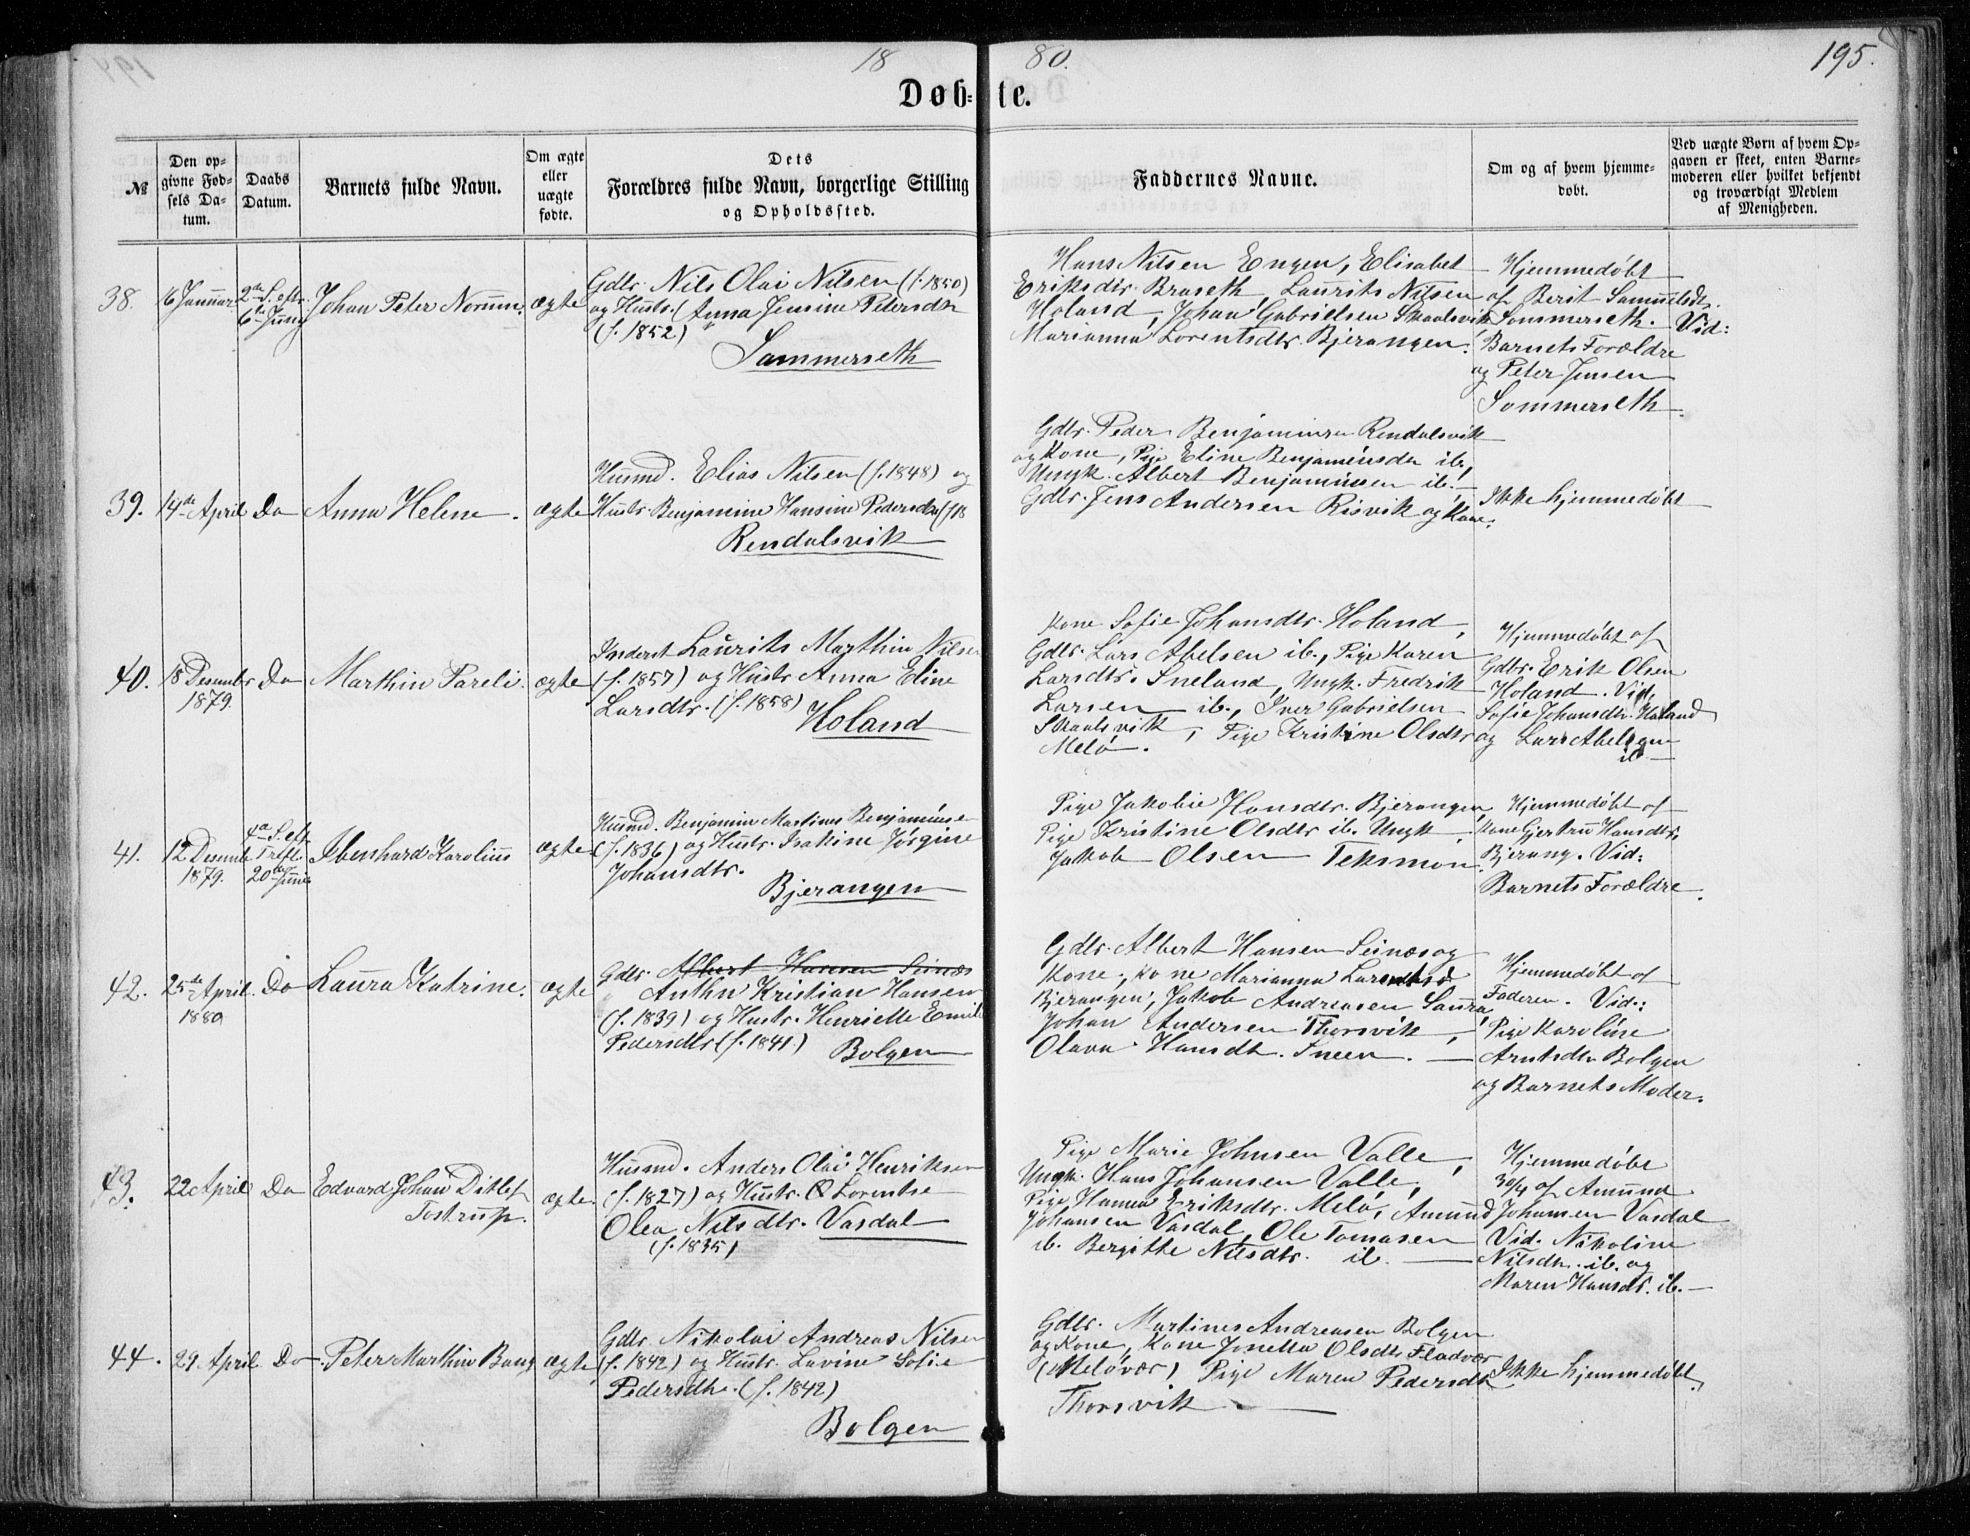 18 80.
195.
Døb-te.
№
Den op-
givne Fød-
sels Da-
tum.
Daabs
Datum.
Barnets fulde Navn.
Om ægte
eller
uægte
fødte.
Dets
Forældres fulde Navn, borgerlige Stilling
og Opholdssted.
Faddernes Navne.
Om og af hvem hjemme-
døbt.
Ved uægte Børn af hvem Op-
gaven er skeet, enten Barne-
moderen eller hvilket bekjendt
og troværdigt Medlem
af Menigheden.
38.
6 Januar
2de S. eftr.
6te Juny
Johan Peter Normn.
ægte
Gdbr. Nils Olai Nilsen (f. 1850)
og Hustr. (Anna Jensine Petersdtr
(f. 1852)
Sommerseth
Hans Nilsen Engen, Elisabet
Eriksdtr. Braseth, Laurits Nilsen
Holand, Johan Gabrielsen Skaalsvik
Marianna Lorentsdtr. Bjerangen.
Hjemmedøbt
af Berit Samuelsdt.
Sommerseth. Vid:
Barnets Forældre
og Peter Jensen
Sommerseth.
39.
14de April
Do
Anna Helene.
ægte
Husmd. Elias Nilsen (f. 1848) og
Hustr. Benjamine Hansine Pedersdtr (f 18
Rendalsvik
Gdbr. Peder Benjaminsen Rendalsvik
og Kone, Pige Eline Benjaminsdtr ib,
Ungk. Albert Benjaminsen ib.
Gdbr. Jens Andersen Risvik og Kone.
Ikke hjemmedøbt
40.
18 Desember
1879
Do
Marthin Pareli.
ægte
Inderst Laurits Marthin Nilsen
(f. 1857) og Hustr. Anna Eline
Larsdtr. (f. 1858)
Holand
Kone Sofie Johansdtr. Holand,
Gdbr. Lars Abelsen ib., Pige Karen
Larsdtr. Fneland, Ungk. Fredrik
Larsen ib., Iver Gabrielsen
Skaalsvik, Pige Kristine Olsdtr
Melø.
Hjemmedøbt af
Gdbr. Erik Olsen
Holand. Vid.
Sofie Johansdtr. Holand
og Lars Abelsen
ib
41.
12 Desembr
1879.
4de S. eft.
Trefl.
20de Junie
Ibenhard Karolius
ægte
Husmd. Benjamin Martinus Benjaminsen
(f. 1836) og Hustr. Isakine Jørgine
Johansdtr.
Bjerangen
Pige Jakobie Hansdtr. Bjerangen,
Pige Kristine Olsdtr ib. Ungk.
Jakob Olsen Teksmon.
Hjemmedøbt af
Kone Gjertru Hansdtr,
Bjerang. Vid:
Barnets Forældre.
42.
25de April
1880
Do
Laura Katrine.
ægte
Gdbr. Albert Hansen Seinæs
Anthn Kristian Hansen
(f. 1839) og Hustr. Henriette Emilie
Pedersdtr (f. 1841)
Bolgen
Gdbr. Albert Hansen Seinæs og
Kone, Kone Marianna Larentsd
Bjerangen, Jakob Andreasen Saura,
Johan Andersen Thorsvik,
Olava Hansdt. Fneen.
Hjemmedøbt af
Faderen. Vid.:
Pige Karoline
Arntsdtr Bolgen
og Barnets Moder.
43.
22 April
Do
Edvard Johan Ditlef
Tostrup.
ægte
Husmd. Anders Olai Henriksen
(f. 1827) og Hustr. Lorentse
Olea Nilsdtr. Vasdal
(f. 1835)
Pige Marie Johnsen Valle,
Ungk. Hans Johansen Valle,
Pige Hanna Eriksdtr. Melø, Amund
Johansen Vasdal, Ole Tomasen
ib. Bergithe Nilsdtr. ib.
Hjemmedøbt
30/4 af Amund
Johansen Vasdal
Vid. Nikoline
Nilsdtr. ib. og
Maren Hansdt. ib.
44.
29 April
Do
Peter Marthin Bang
ægte
Gdbr. Nikolai Andreas Nilsen
(f. 1842) og Hustr. Lavine Sofie
Pedersdtr. (f. 1842)
Bolgen
Gdbr. Martines Andreasen Bolgen
og Kone, Kone Jonetta Olsdtr. Fladvær
(Meløvær) Pige Maren Pedersdtr
Thorsvik
Ikke hjemmedøbt.